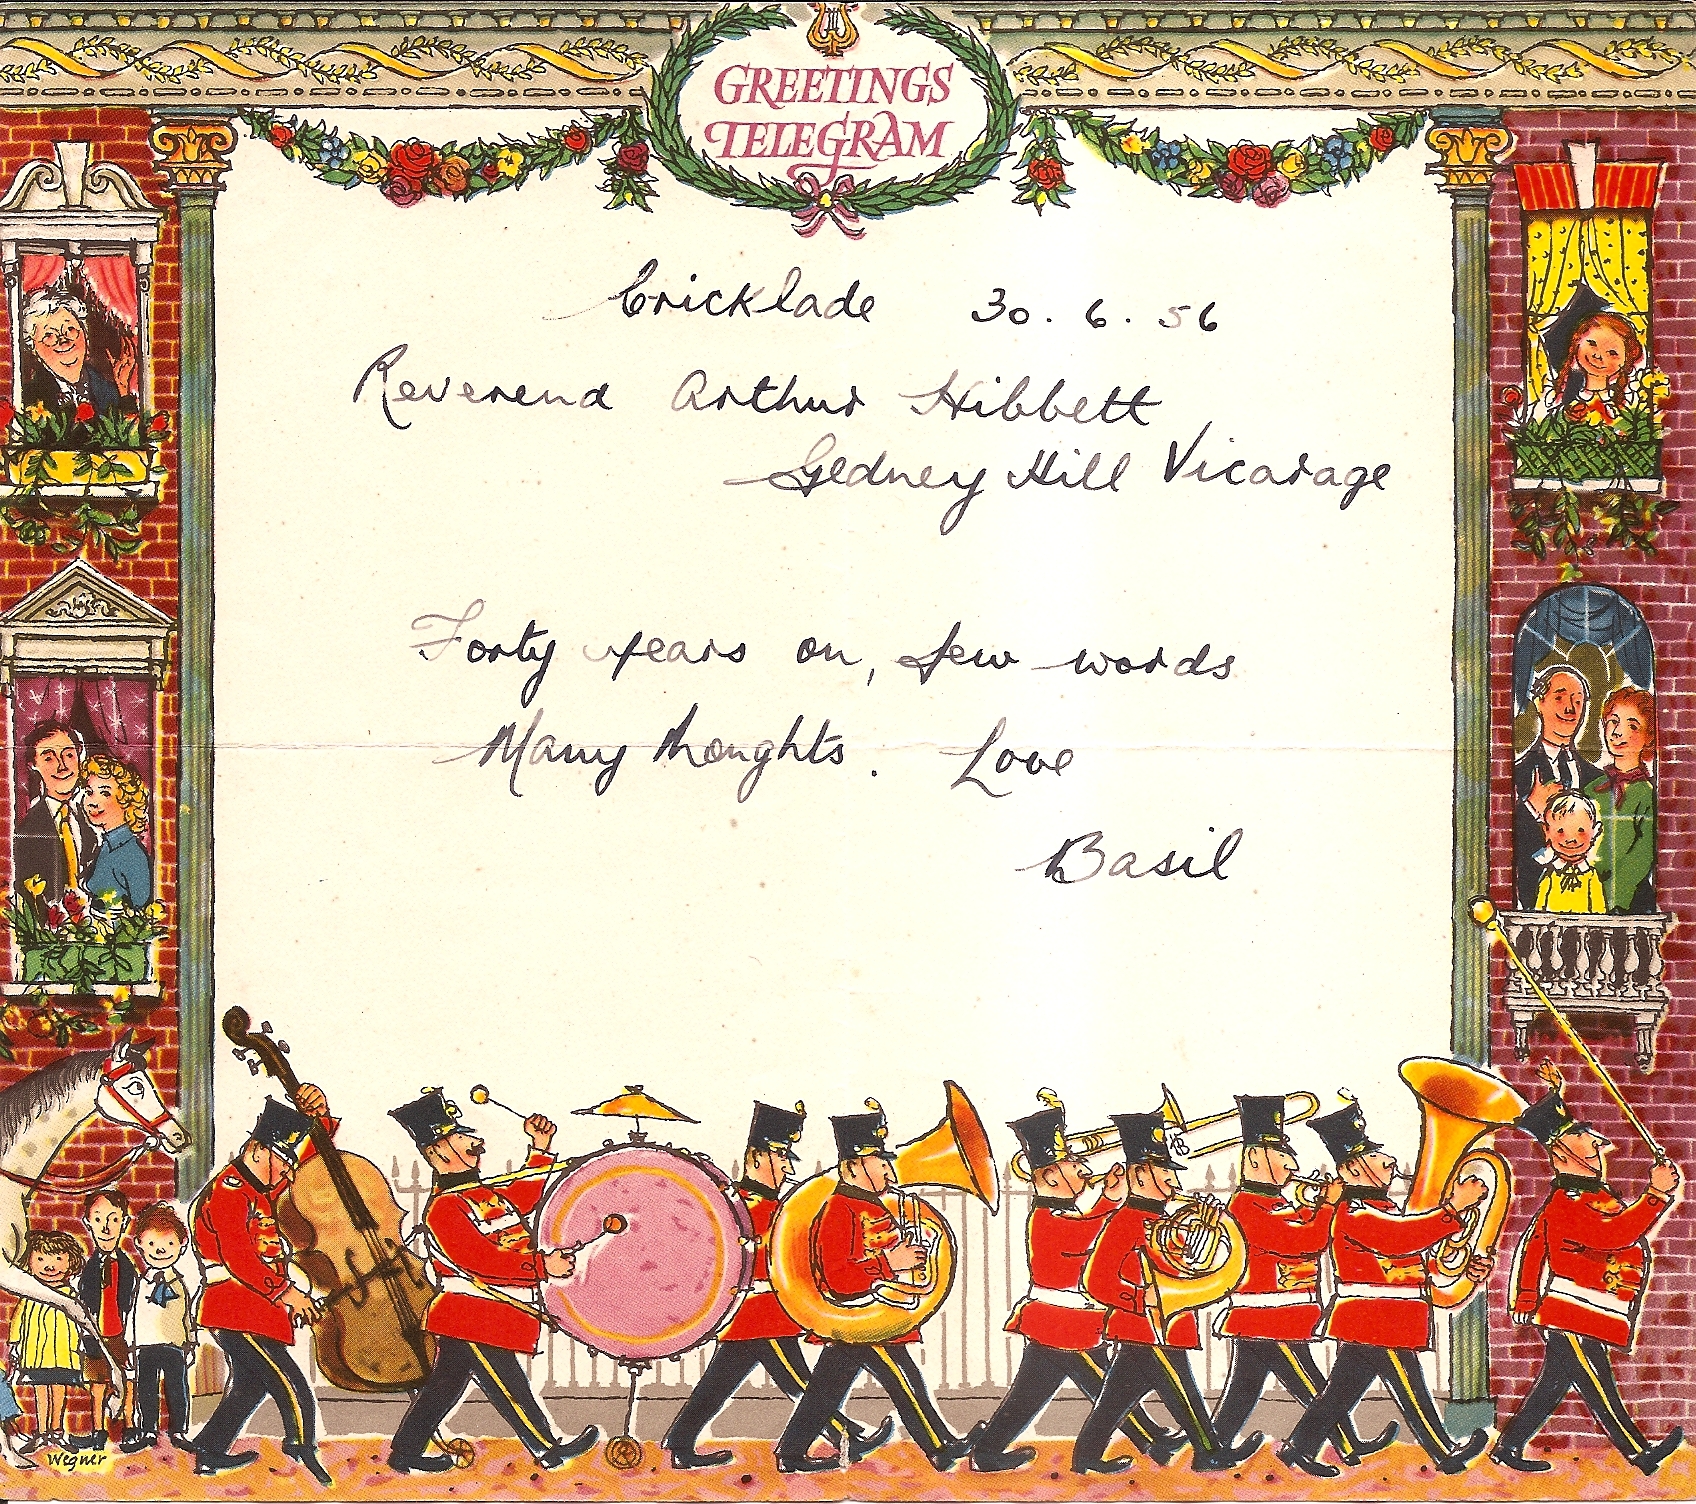 GREETINGS
TELEGRAM
Cricklade 30.6.56
Reverend Arthur Hibbett
Gedney Hill Vicarage
Forty years on, few words
Many thoughts. Love
Basil
Wegner